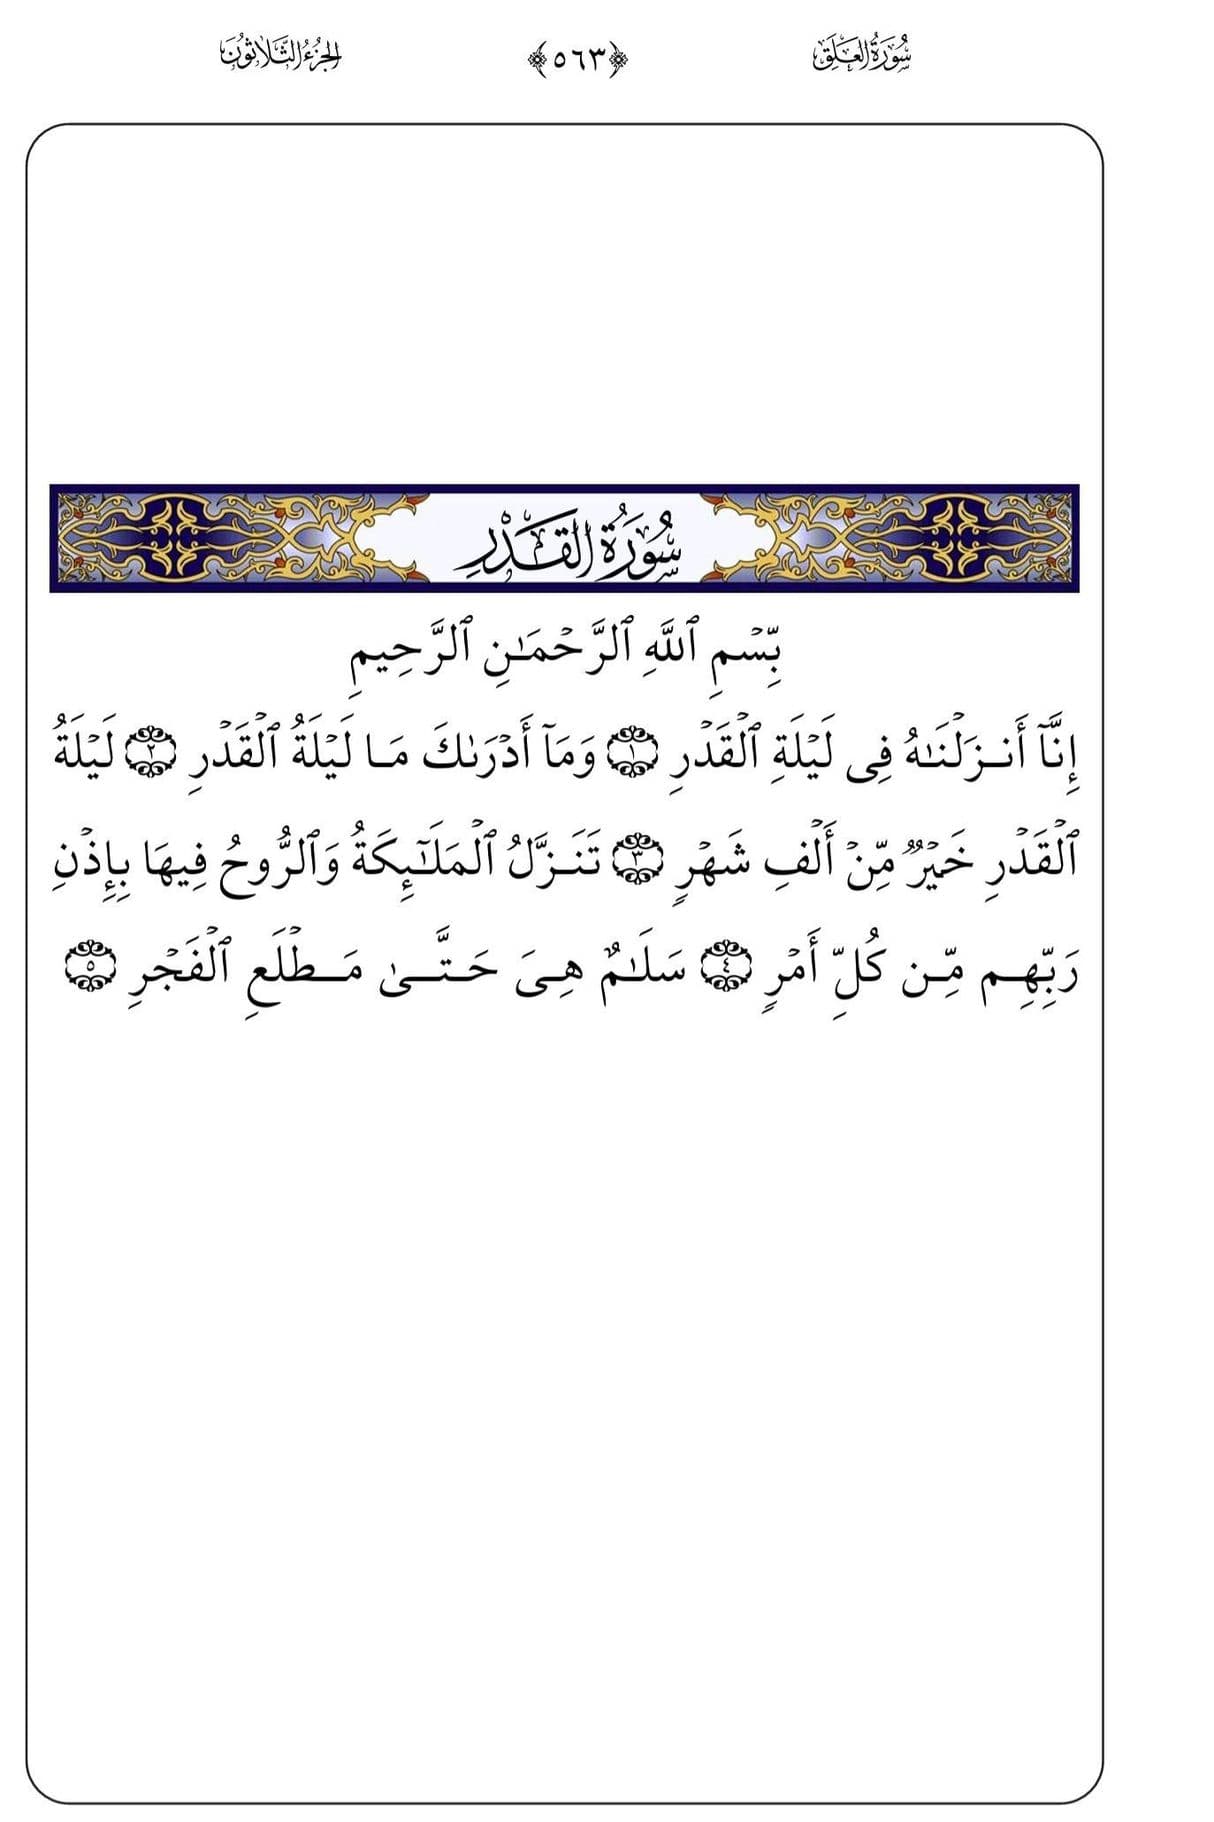 سُورَةُ العَلَقِ ﴿٥٦٣﴾ الجُزْءُ الثَّلَاثُونَ
سُورَةُ القَدْرِ
بِّسۡمِ ٱللَّهِ ٱلرَّحۡمَـٰنِ ٱلرَّحِيمِ
إِنَّآ أَنـزَلۡنَـٰهُ فِى لَيۡلَةِ ٱلۡقَدۡرِ ۝١ وَمَآ أَدۡرَىٰكَ مَـا لَيۡلَةُ ٱلۡقَدۡرِ ۝٢ لَيۡلَةُ
ٱلۡقَدۡرِ خَيۡرٌ مِّنۡ أَلۡفِ شَهۡرٍ ۝٣ تَنَـزَّلُ ٱلۡمَلَـٰٓئِكَةُ وَٱلرُّوحُ فِيهَا بِإِذۡنِ
رَبِّهِـم مِّـن كُلِّ أَمۡرٍ ۝٤ سَلَـٰمٌ هِـىَ حَـتَّـىٰ مَـطۡلَعِ ٱلۡفَجۡرِ ۝٥